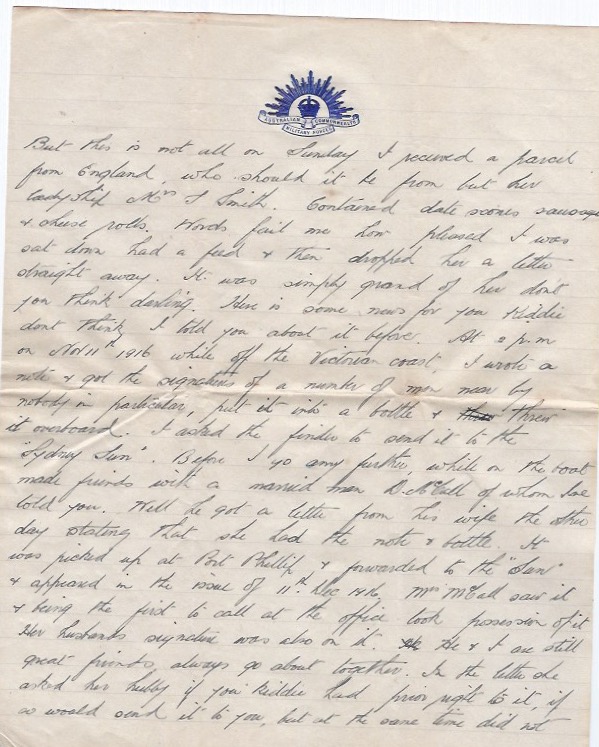 AUSTRALIAN COMMONWEALTH
MILITARY FORCES
But this is not all on Sunday I received a parcel
from England, who should it be from but her
ladyship Mrs F Smith. Contained date scones sausage
& cheese rolls. Words fail me how pleased I was
sat down had a feed & then dropped her a letter
straight away. It was simply grand of her dont
you think darling. Here is some news for you Kiddie
dont think I told you about it before. At 2 p.m
on Nov 11th 1916 while off the Victorian coast, I wrote a
note & got the signatures of a number of men near by
nobody in particular, put it into a bottle & threw
it overboard. I asked the finder to send it to the
"Sydney Sun". Before I go any further, while on the boat
made friends with a married man D. McCall of whom Ive
told you. Well he got a letter from his wife the other
day stating that she had the note & bottle. It
was picked up at Port Phillip & forwarded to the "Sun"
& appeared in the issue of 11th Dec 1916, Mrs McCall saw it
& being the first to call at the office took possession of it
Her husbands signature was also on it. He & I are still
great friends, always go about together. In the letter she
asked her hubby if you Kiddie had prior right to it, if
so would send it to you, but at the same time did not